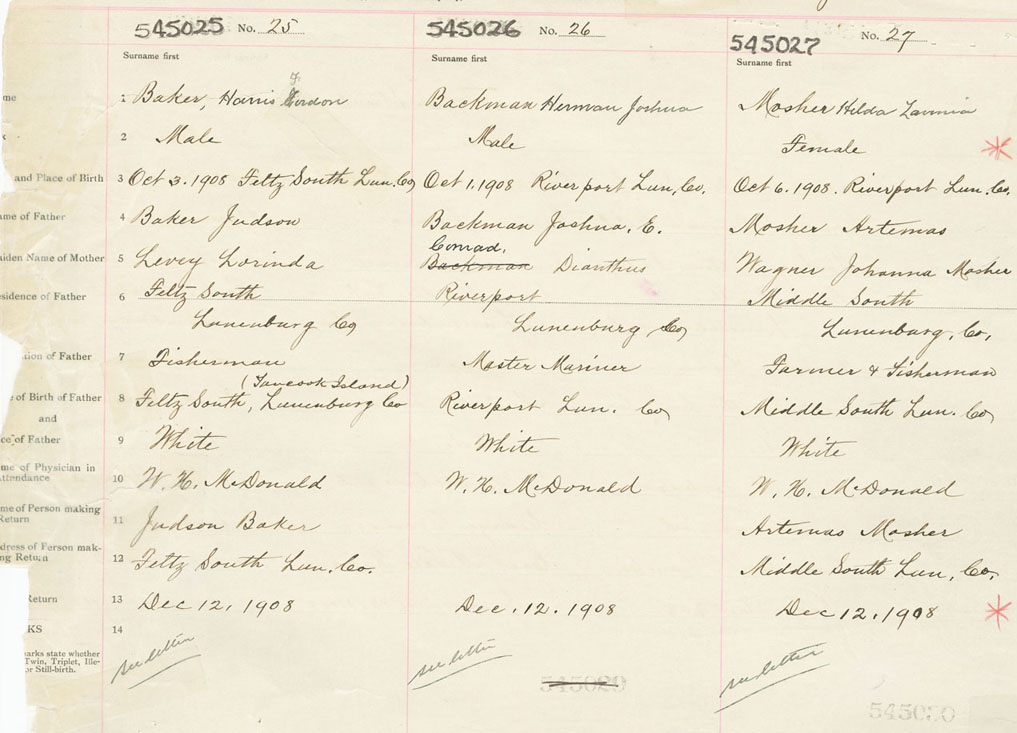 545025 No. 25
Surname first
545026 No. 26
Surname first
545027 No. 27
Surname first
me 1 Baker, Harris F. Gordon
Backman Herman Joshua
Mosher Hilda Lavinia
2 Male
Male
Female
and Place of Birth 3 Oct 3. 1908 Feltz South Lun. Co
Oct 1. 1908 Riverport Lun, Co.
Oct 6. 1908. Riverport Lun. Co.
ame of Father 4 Baker Judson
Backman Joshua. E.
Mosher Artemas
Conrad.
aiden Name of Mother 5 Levey Lorinda
Backman Dianthus
Wagner Johanna Mosher
esidence of Father 6 Feltz South
Riverport
Middle South
Lunenburg Co
Lunenburg Co
Lunenburg, Co,
tion of Father 7 Fisherman
Master Mariner
Farmer & Fisherman
(Tancook Island)
e of Birth of Father 8 Feltz South, Lunenburg Co
Riverport Lun. Co
Middle South Lun. Co
and
ce of Father 9 White
White
White
me of Physician in
Attendance 10 W. H. McDonald
W. H. McDonald
W. H. McDonald
me of Person making
Return 11 Judson Baker
Artemas Mosher
dress of Person mak-
ng Return 12 Feltz South Lun. Co.
Middle South Lun, Co.
Return 13 Dec 12, 1908
Dec. 12. 1908
Dec 12. 1908
KS 14
arks state whether
Twin, Triplet, Ille-
or Still-birth.
see letter
see letter
see letter
545029